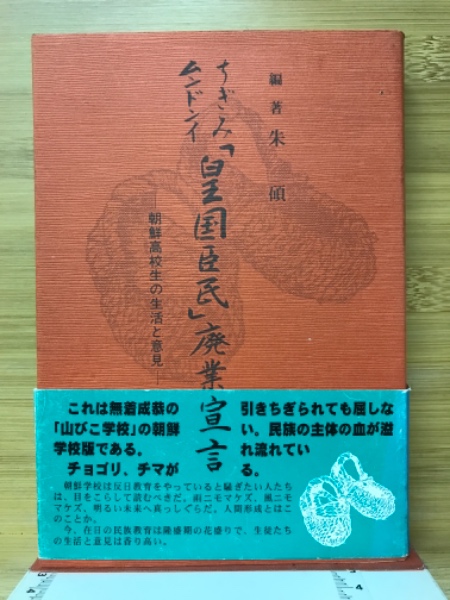 編著 朱碩
ちぎゃみ
ムンドンイ
「皇国臣民」廃業宣言
―朝鮮高校生の生活と意見―
これは無着成恭の
「山びこ学校」の朝鮮
学校版である。
チョゴリ、チマが
引きちぎられても屈しな
い。民族の主体の血が溢
れ流れてい
る。
朝鮮学校は反日教育をやっていると騒ぎたい人たち
は、目をこらして読むべきだ。雨ニモマケズ、風ニモ
マケズ、明るい未来へ真っしぐらだ。人間形成とはこ
のことか。
今、在日の民族教育は陸盛期の花盛りで、生徒たち
の生活と意見は香り高い。